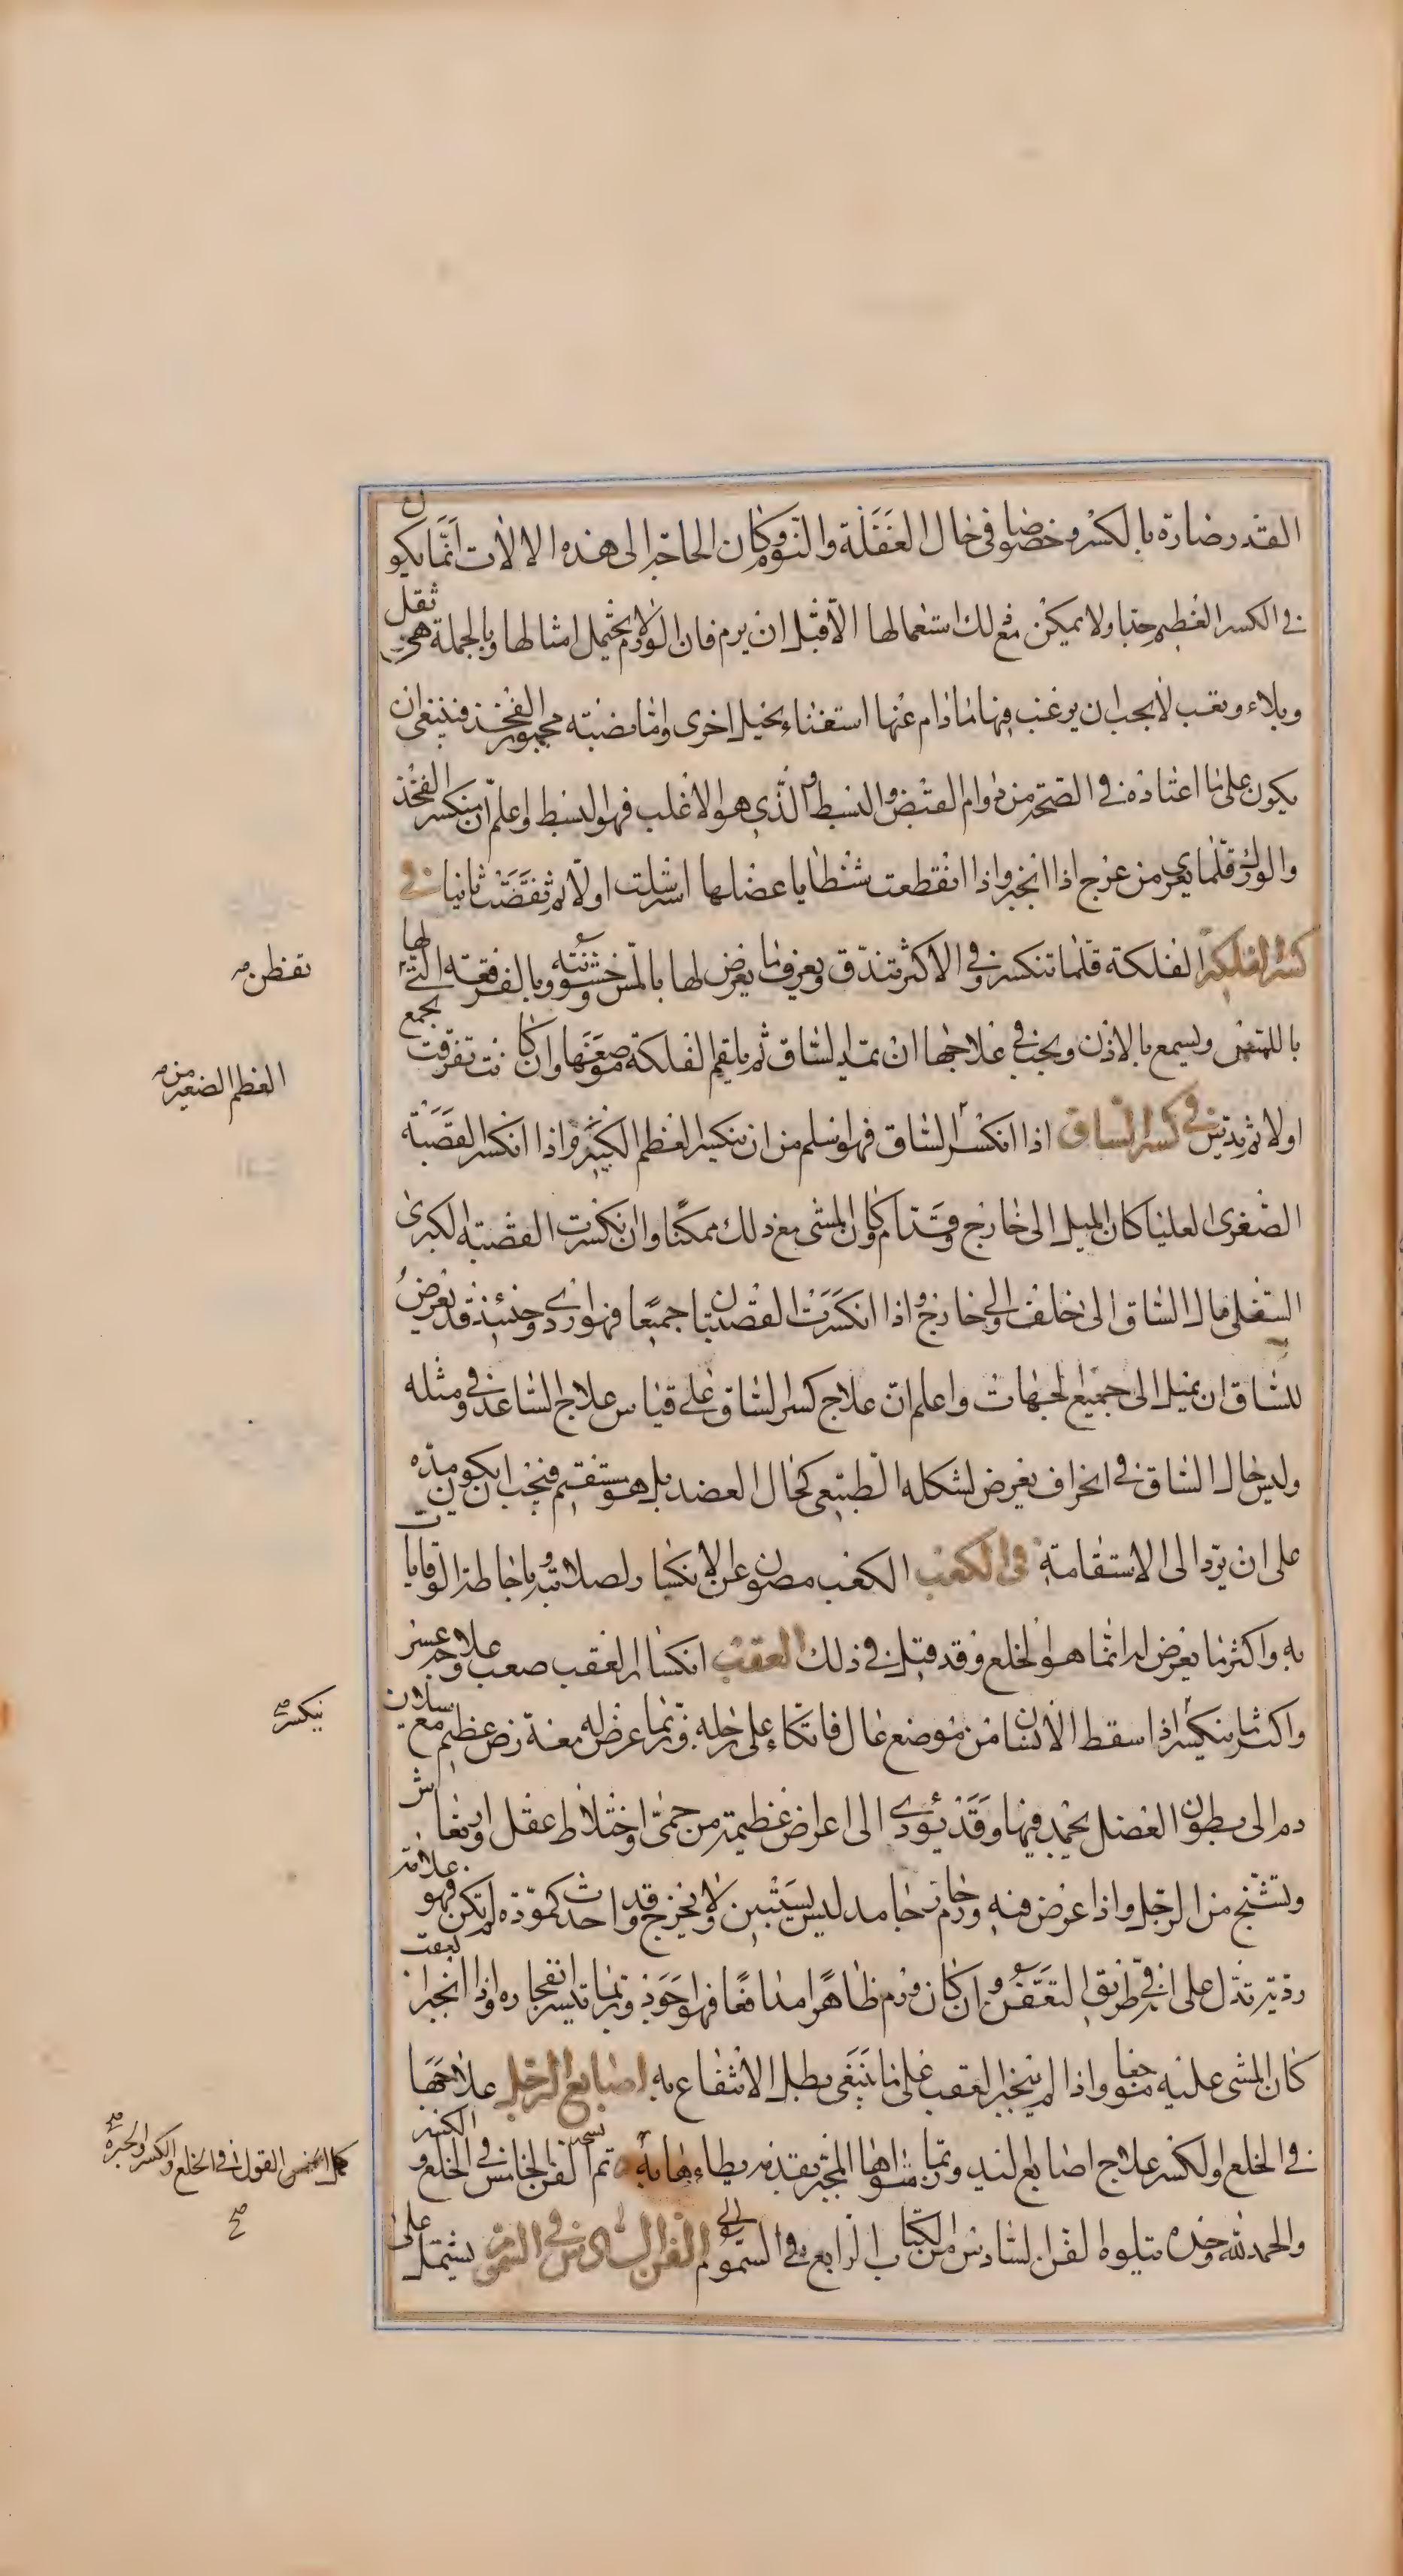 القدر ضارة بالكسر وخصوصا فى حال الغفلة والنوم وكان الحاجة الى هذه الالات انما يكون
فى الكسر العظيم جدا ولا يمكن مع لك استعمالها الا قبل ان يرم فان الورم لا يحتمل امثالها وبالجملة هى ثقل
وبلاء وتعب لا يجب ان يرغب فيها ما دام عنها استغناء بحيل اخرى واما نصبة مجبور الفخذ فينبغى ان
يكون على ما اعتاده فى الصحة من دوام القبض والبسط والذى هو الاغلب فهو البسط واعلم ان منكسر الفخذ
والورك قلما يعرى من عرج اذا انجبر واذا انقطعت شظايا عضلها استرسلت اولا ثم تقضت ثانيا فى
كسر الفلكة الفلكة قلما تنكسر وفى الاكثر تندق ويعرف ما يعرض لها باللمس خشونته وبالفرقعة التى لها
باللمس ويسمع بالاذن ويجب فى علاجها ان يمد الساق ثم يلقم الفلكة موضعها وان كانت تفرقت يجمع
اولا ثم يدس فى كسر الساق اذا انكسر الساق فهو اسلم من ان ينكسر العظم الكبير واذا انكسر القصبة
الصغرى العليا كان الميل الى خارج وقدام وكان المشى مع ذلك ممكنا وان انكسرت القصبة الكبرى
السفلى مال الساق الى خلف والى خارج واذا انكسرت القصبتان جميعا فهو اردى وحينئذ قد يعرض
للساق ان يميل الى جميع الجهات واعلم ان علاج كسر الساق على قياس علاج الساعد فى ومثله
وليس حال الساق فى انحراف يعرض لشكله الطبيعى كحال العضد بل هو مستقيم فيجب ان يكون مده
على ان يرد الى الاستقامة فى الكعب الكعب مصون عن الانكسار لصلابته وباحاطة الوقايات
به واكثر ما يعرض له انما هو الخلع وقد قيل فى ذلك العقب انكسار العقب صعب وعلاجه عسر
واكثر ما ينكسر اذا سقط الانسان من موضع عال فاتكاء على رجله وربما عرض له معه رض عظيم مع سيلان
دم الى بطون العضل يجمد فيها وقد يؤدى الى اعراض عظيمة من حمى واختلاط عقل وارتعاش
وتشنج من الرجل واذا عرض فيه ورم جامد ليس يستبين ولا يخرج وقد احدث كمودة لم تكن فهو علامة
ردية تدل على انه فى طريق التعفن وان كان ورم ظاهرا مدافعا فهو اجود وربما تيسر انفجاره واذا انجبر العقب
كان المشى عليه موجعا واذا لم ينجبر العقب على ما ينبغى بطل الانتفاع به اصابع الرجل علاجها
فى الخلع والكسر علاج اصابع اليد وربما سواها المجبر بقدمه يطاءها به تم الفن الخامس فى الخلع و الكسر
والحمد لله وحده ويتلوه الفن السادس من الكتاب الرابع فى السموم الفن السادس فى السموم يشتمل على
تقظن
العظم الصغير من
ينكسر صح
القول فى الخلع والكسر والجبر صح
صح